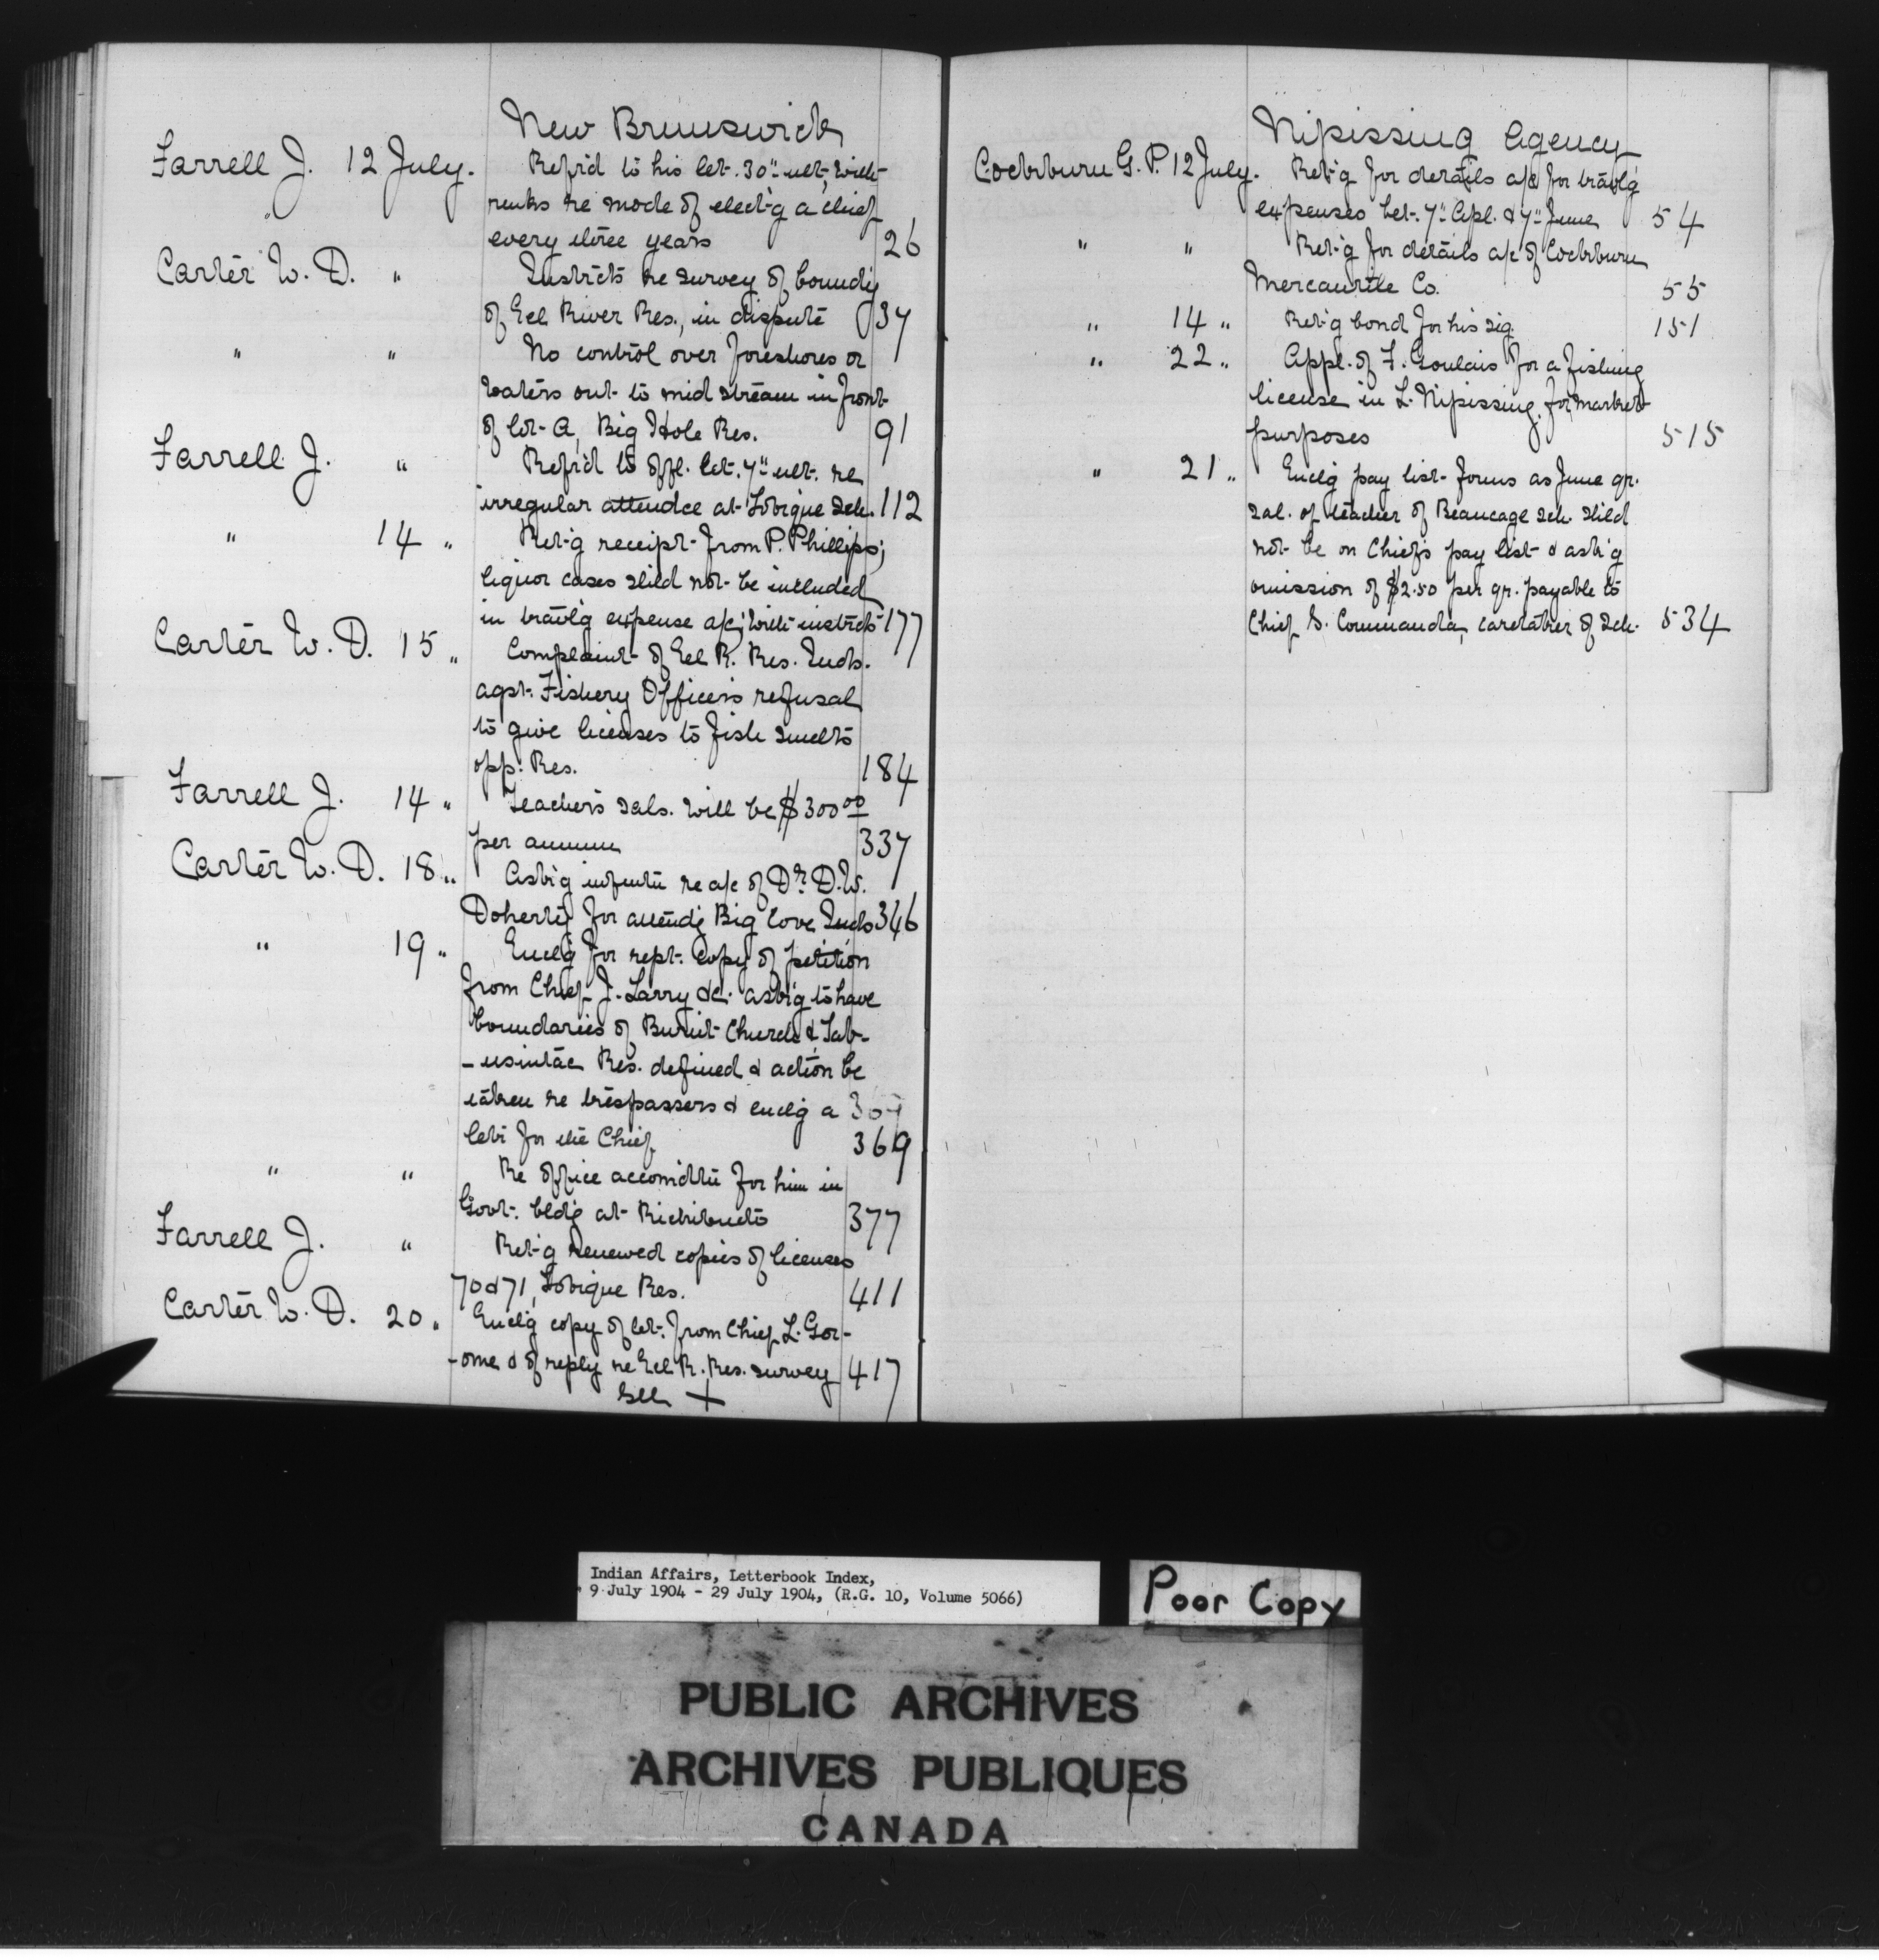 New Brunswick
Farrell J. 12 July. Refd to his let. 30" ult, with
rmks re mode of elect'g a chief
every three years 26
Carter W. D. " Instrcts re survey of boundy
of Eel River Res., in dispute 37
" " No control over foreshores or
waters out to mid stream in front
of lot A, Big Hole Res. 91
Farrell J. " Refd to offl. let. 7" ult. re
irregular attendce at Tobique Sch. 112
" 14 " Ret'g receipt from P. Phillips;
liquor cases shld not be included
in travlg expense a/c; with instrcts 177
Carter W. D. 15 " Complaint of Eel R. Res. Inds.
agst. Fishery Officer's refusal
to give licenses to fish smelts
opp. Res. 184
Farrell J. 14 " Teachers sals. will be $300 00
per annum 337
Carter W. D. 18 " Ask'g infmtn re a/c of Dr. D.W.
Doherty for attendg Big Cove Inds 346
" 19 " Enclg for rept. copy of petition
from Chief J. Larry &c. ask'g to have
boundaries of Burnt Church & Tab-
-usintac Res. defined & action be
taken re trespassers & enclg a
letr for the Chief 369
" " Re office accomdtn for him in
Govt. bldg at Richibucto 377
Farrell J. " Ret'g renewed copies of licenses
70 & 71, Tobique Res. 411
Carter W. D. 20 " Enclg copy of let. from Chief L. Ger-
-ome & of reply re Eel R. Res. survey 417
See +
Nipissing Agency
Cockburn G. P. 12 July. Ret'g for details a/c for travlg
expenses bet. 7" Apl. & 7" June 54
" " Ret'g for details a/c of Cockburn
Mercantile Co. 55
" 14 " Ret'g bond for his sig. 151
" 22 " Appl. of F. Goulais for a fishing
license in L. Nipissing for market
purposes 515
" 21 " Enclg pay list forms as June qr.
sal. of teacher of Beaucage Sch. shld
not be on Chief's pay list & ask'g
omission of $2.50 per qr. payable to
Chief S. Commanda, caretaker of Sch. 534
Indian Affairs, Letterbook Index,
9 July 1904 - 29 July 1904, (R.G. 10, Volume 5066)
Poor Copy
PUBLIC ARCHIVES
ARCHIVES PUBLIQUES
CANADA